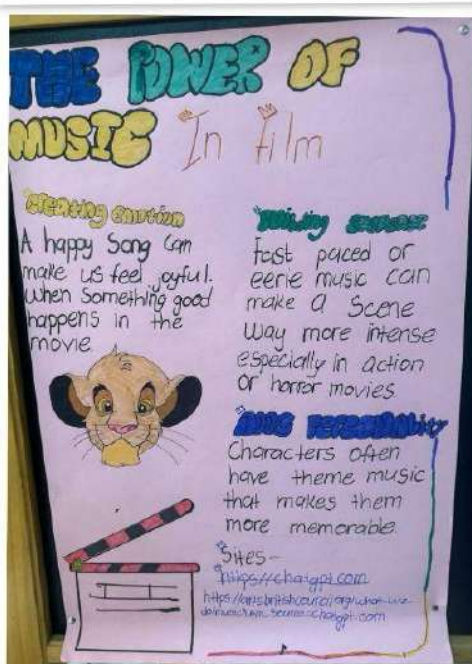 THE POWER OF
MUSIC In film
Creating emotion
A happy Song Can
make us feel joyful.
When something good
happens in the
movie.
Building suspense
fast paced or
eerie music can
make a scene
way more intense
especially in action
or horror movies.
Adds personality
Characters often
have theme music
that makes them
more memorable.
Sites-
https//chatgpt.com